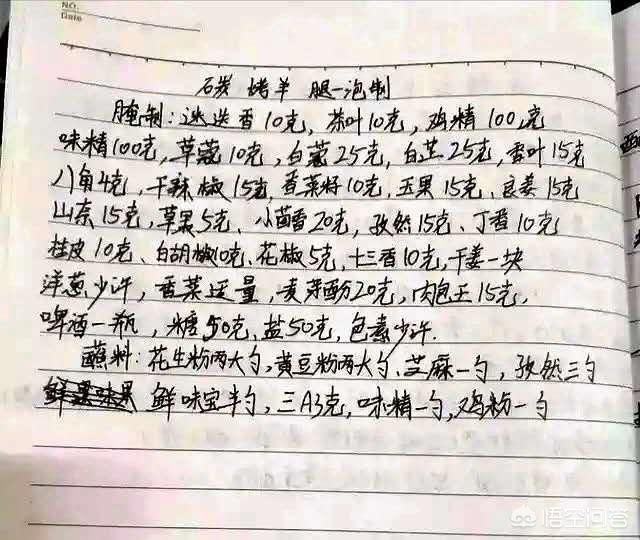 NO.
Date
碳 烤羊 腿一泡制
腌制：迷迭香10克，茶叶10克，鸡精100克
味精100克，草蔻10克，白蔻25克，白芷25克，香叶15克
八角4克，干辣椒15克，香菜籽10克，玉果15克，良姜15克
山奈15克，草果5克、小茴香20克，孜然15克、丁香10克
桂皮10克、白胡椒10克、花椒5克，十三香10克，干姜一块
洋葱少许，香菜适量，麦芽酚20克，肉包王15克，
啤酒一瓶，糖50克，盐50克，色素少许.
蘸料：花生粉两大勺，黄豆粉两大勺、芝麻一勺，孜然三勺
鲜味宝半勺，三A3克，味精一勺，鸡粉一勺
悟空问答